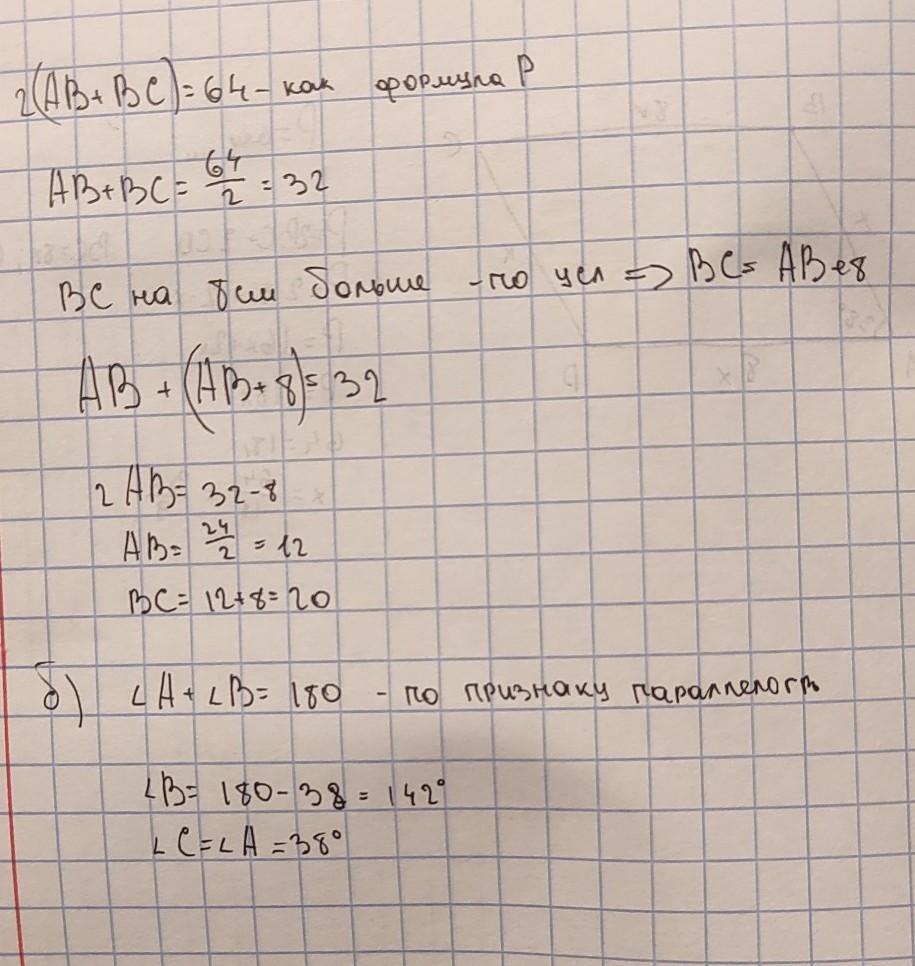 2(AB+BC)=64 - как формула P
AB+BC= 64/2 = 32
BC на 8см больше - по усл => BC= AB+8
AB + (AB+8)= 32
2AB= 32-8
AB= 24/2 = 12
BC= 12+8=20
б) ∠A+∠B= 180 - по признаку параллелогр
∠B= 180-38 = 142°
∠C=∠A=38°